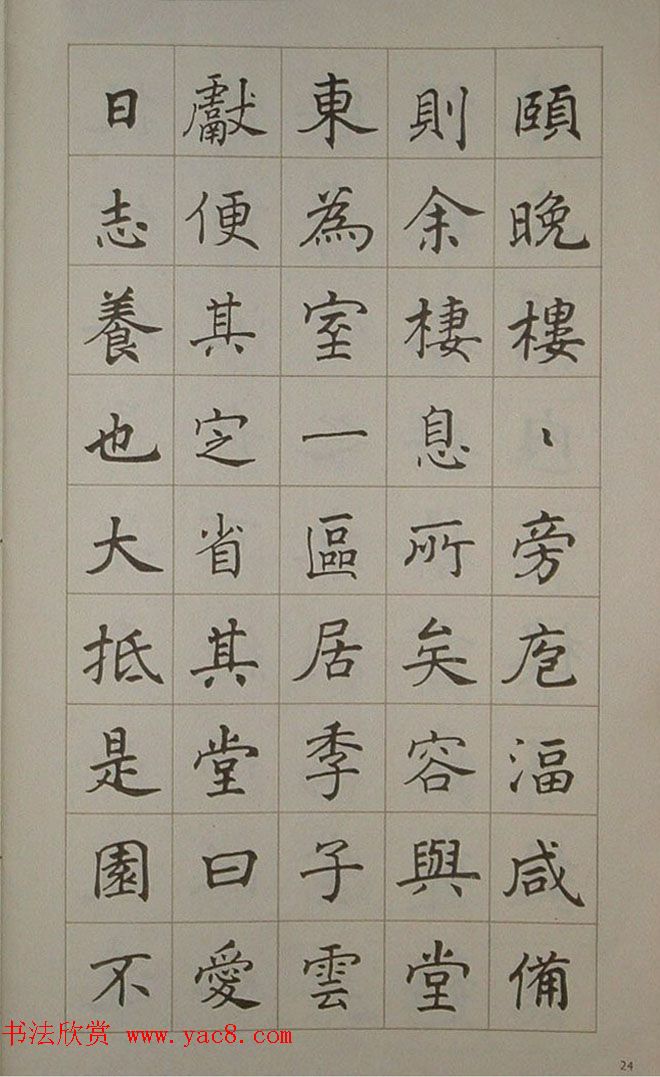 頤晚樓丶旁庖湢咸備
則余棲息所矣容與堂
東為室一區居季子雲
獻便其定省其堂曰愛
日志養也大抵是園不
书法欣赏 www.yac8.com
24